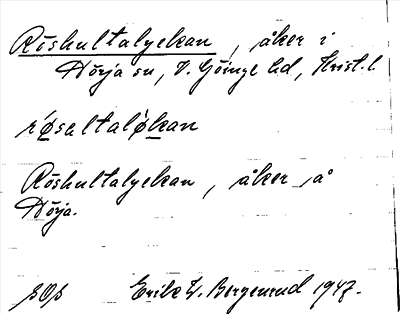 Röshultalyckan, åker i
Hörja sn, V. Göinge hd, Krist. l
røsaltaløkan
Röshultalyckan, åker på
Hörja.
Erik W. Bergenrud 1947.